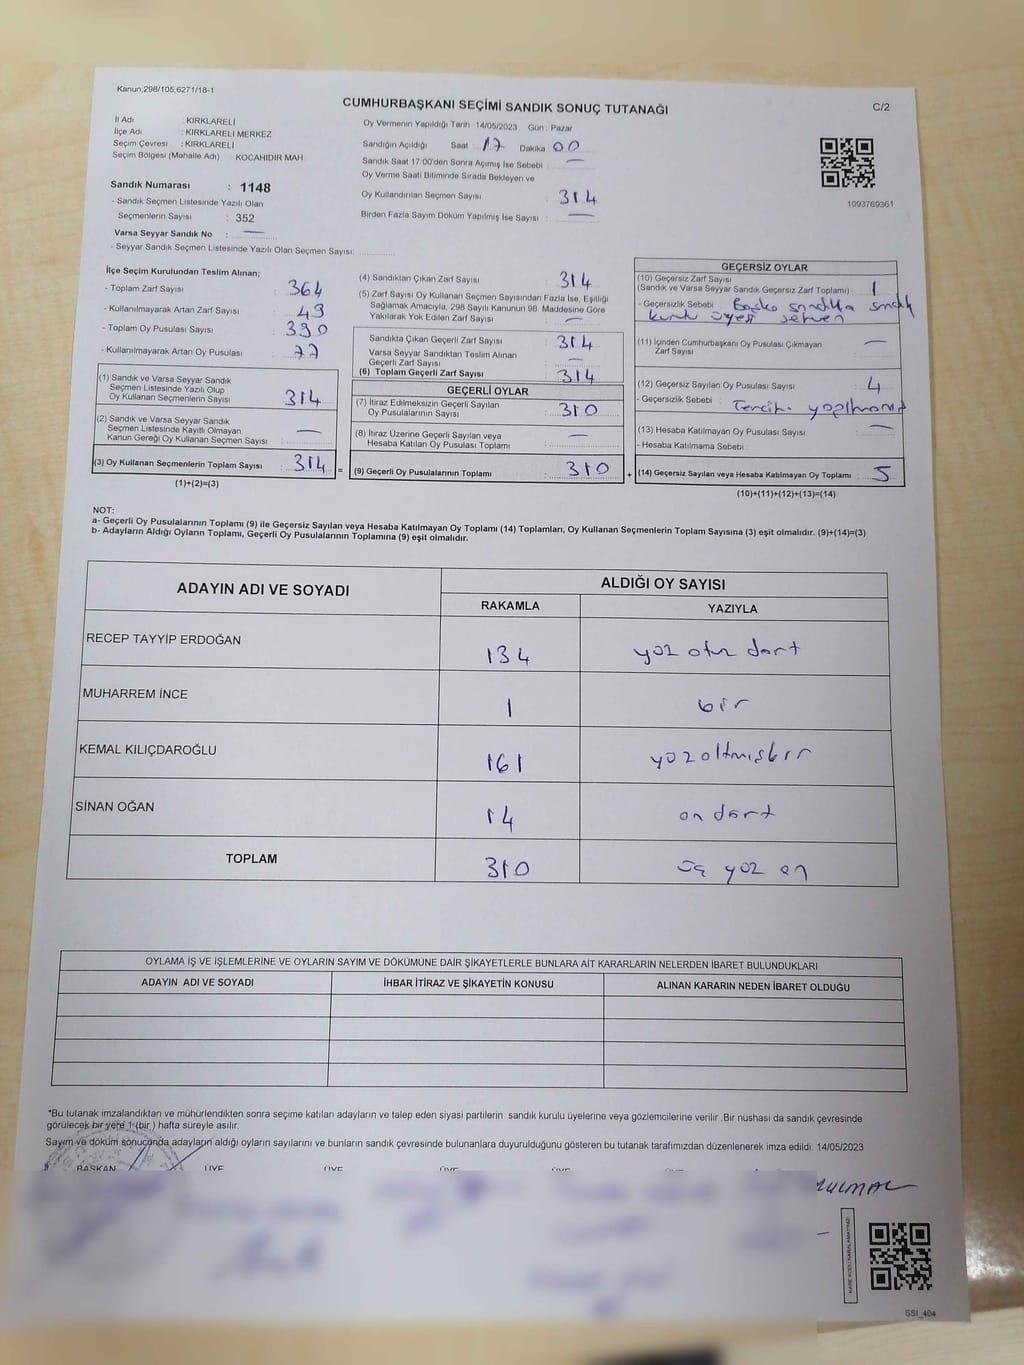 Kanun,298/105,6271/18-1
CUMHURBAŞKANI SEÇİMİ SANDIK SONUÇ TUTANAĞI
C/2
İl Adı : KIRKLARELİ
İlçe Adı : KIRKLARELİ MERKEZ
Seçim Çevresi : KIRKLARELİ
Seçim Bölgesi (Mahalle Adı) KOCAHIDIR MAH.
Sandık Numarası : 1148
- Sandık Seçmen Listesinde Yazılı Olan
Seçmenlerin Sayısı : 352
Varsa Seyyar Sandık No : —
- Seyyar Sandık Seçmen Listesinde Yazılı Olan Seçmen Sayısı:
Oy Vermenin Yapıldığı Tarih 14/05/2023 Gün : Pazar
Sandığın Açıldığı Saat 17 Dakika 00
Sandık Saat 17:00'den Sonra Açımış İse Sebebi : —
Oy Verme Saati Bitiminde Sırada Bekleyen ve
Oy Kullandırılan Seçmen Sayısı : 314
Birden Fazla Sayım Döküm Yapılmış İse Sayısı : —
1093769361
İlçe Seçim Kurulundan Teslim Alınan;
- Toplam Zarf Sayısı : 364
- Kullanılmayarak Artan Zarf Sayısı : 49
- Toplam Oy Pusulası Sayısı : 390
- Kullanılmayarak Artan Oy Pusulası : 77
(1) Sandık ve Varsa Seyyar Sandık
Seçmen Listesinde Yazılı Olup
Oy Kullanan Seçmenlerin Sayısı : 314
(2) Sandık ve Varsa Seyyar Sandık
Seçmen Listesinde Kayıtlı Olmayan
Kanun Gereği Oy Kullanan Seçmen Sayısı : —
(3) Oy Kullanan Seçmenlerin Toplam Sayısı : 314 =
(1)+(2)=(3)
(4) Sandıktan Çıkan Zarf Sayısı : 314
(5) Zarf Sayısı Oy Kullanan Seçmen Sayısından Fazla İse, Eşitliği
Sağlamak Amacıyla, 298 Sayılı Kanunun 98. Maddesine Göre
Yakılarak Yok Edilen Zarf Sayısı : —
Sandıkta Çıkan Geçerli Zarf Sayısı : 314
Varsa Seyyar Sandıktan Teslim Alınan
Geçerli Zarf Sayısı : —
(6) Toplam Geçerli Zarf Sayısı : 314
GEÇERLİ OYLAR
(7) İtiraz Edilmeksizin Geçerli Sayılan
Oy Pusulalarının Sayısı : 310
(8) İtiraz Üzerine Geçerli Sayılan veya
Hesaba Katılan Oy Pusulası Toplamı : —
(9) Geçerli Oy Pusulalarının Toplamı : 310 +
GEÇERSİZ OYLAR
(10) Geçersiz Zarf Sayısı
(Sandık ve Varsa Seyyar Sandık Geçersiz Zarf Toplamı) : 1
- Geçersizlik Sebebi : Başka sandıkta sandık
kurulu üyesi
(11) İçinden Cumhurbaşkanı Oy Pusulası Çıkmayan
Zarf Sayısı : —
(12) Geçersiz Sayılan Oy Pusulası Sayısı : 4
- Geçersizlik Sebebi : Tercih yapılmamış
(13) Hesaba Katılmayan Oy Pusulası Sayısı : —
- Hesaba Katılmama Sebebi :
(14) Geçersiz Sayılan veya Hesaba Katılmayan Oy Toplamı : 5
(10)+(11)+(12)+(13)=(14)
NOT:
a- Geçerli Oy Pusulalarının Toplamı (9) ile Geçersiz Sayılan veya Hesaba Katılmayan Oy Toplamı (14) Toplamları, Oy Kullanan Seçmenlerin Toplam Sayısına (3) eşit olmalıdır. (9)+(14)=(3)
b- Adayların Aldığı Oyların Toplamı, Geçerli Oy Pusulalarının Toplamına (9) eşit olmalıdır.
ADAYIN ADI VE SOYADI
ALDIĞI OY SAYISI
RAKAMLA YAZIYLA
RECEP TAYYİP ERDOĞAN 134 yüz otuz dört
MUHARREM İNCE 1 bir
KEMAL KILIÇDAROĞLU 161 yüzaltmışbir
SİNAN OĞAN 14 on dört
TOPLAM 310 üç yüz on
OYLAMA İŞ VE İŞLEMLERİNE VE OYLARIN SAYIM VE DÖKÜMÜNE DAİR ŞİKAYETLERLE BUNLARA AİT KARARLARIN NELERDEN İBARET BULUNDUKLARI
ADAYIN ADI VE SOYADI İHBAR İTİRAZ VE ŞİKAYETİN KONUSU ALINAN KARARIN NEDEN İBARET OLDUĞU
*Bu tutanak imzalandıktan ve mühürlendikten sonra seçime katılan adayların ve talep eden siyasi partilerin sandık kurulu üyelerine veya gözlemcilerine verilir .Bir nüshası da sandık çevresinde
görülecek bir yere 1 (bir ) hafta süreyle asılır.
Sayım ve döküm sonucunda adayların aldığı oyların sayılarını ve bunların sandık çevresinde bulunanlara duyurulduğunu gösteren bu tutanak tarafımızdan düzenlenerek imza edildi. 14/05/2023
BAŞKAN ÜYE ÜYE ÜYE ÜYE ÜYE
SSI_404